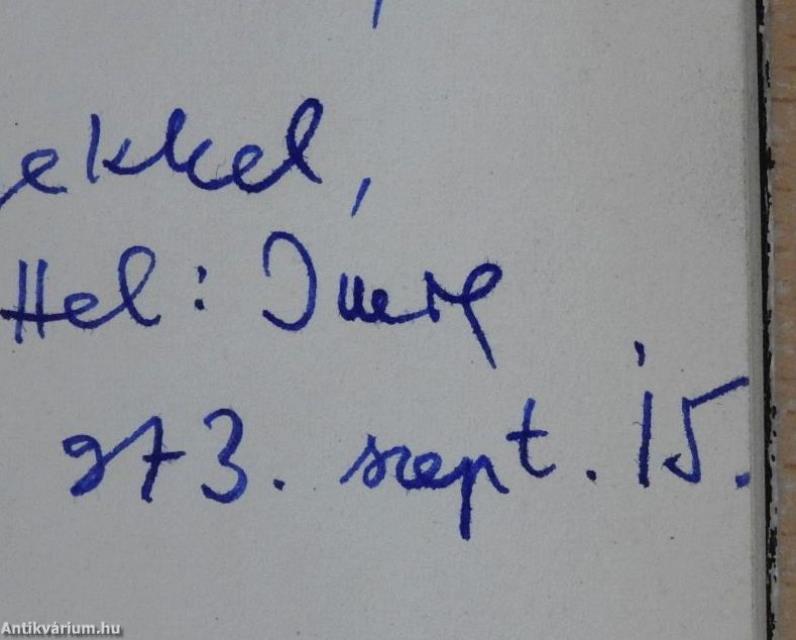 ekkel,
ttel: Imre
973. szept. 15.
Antikvárium.hu